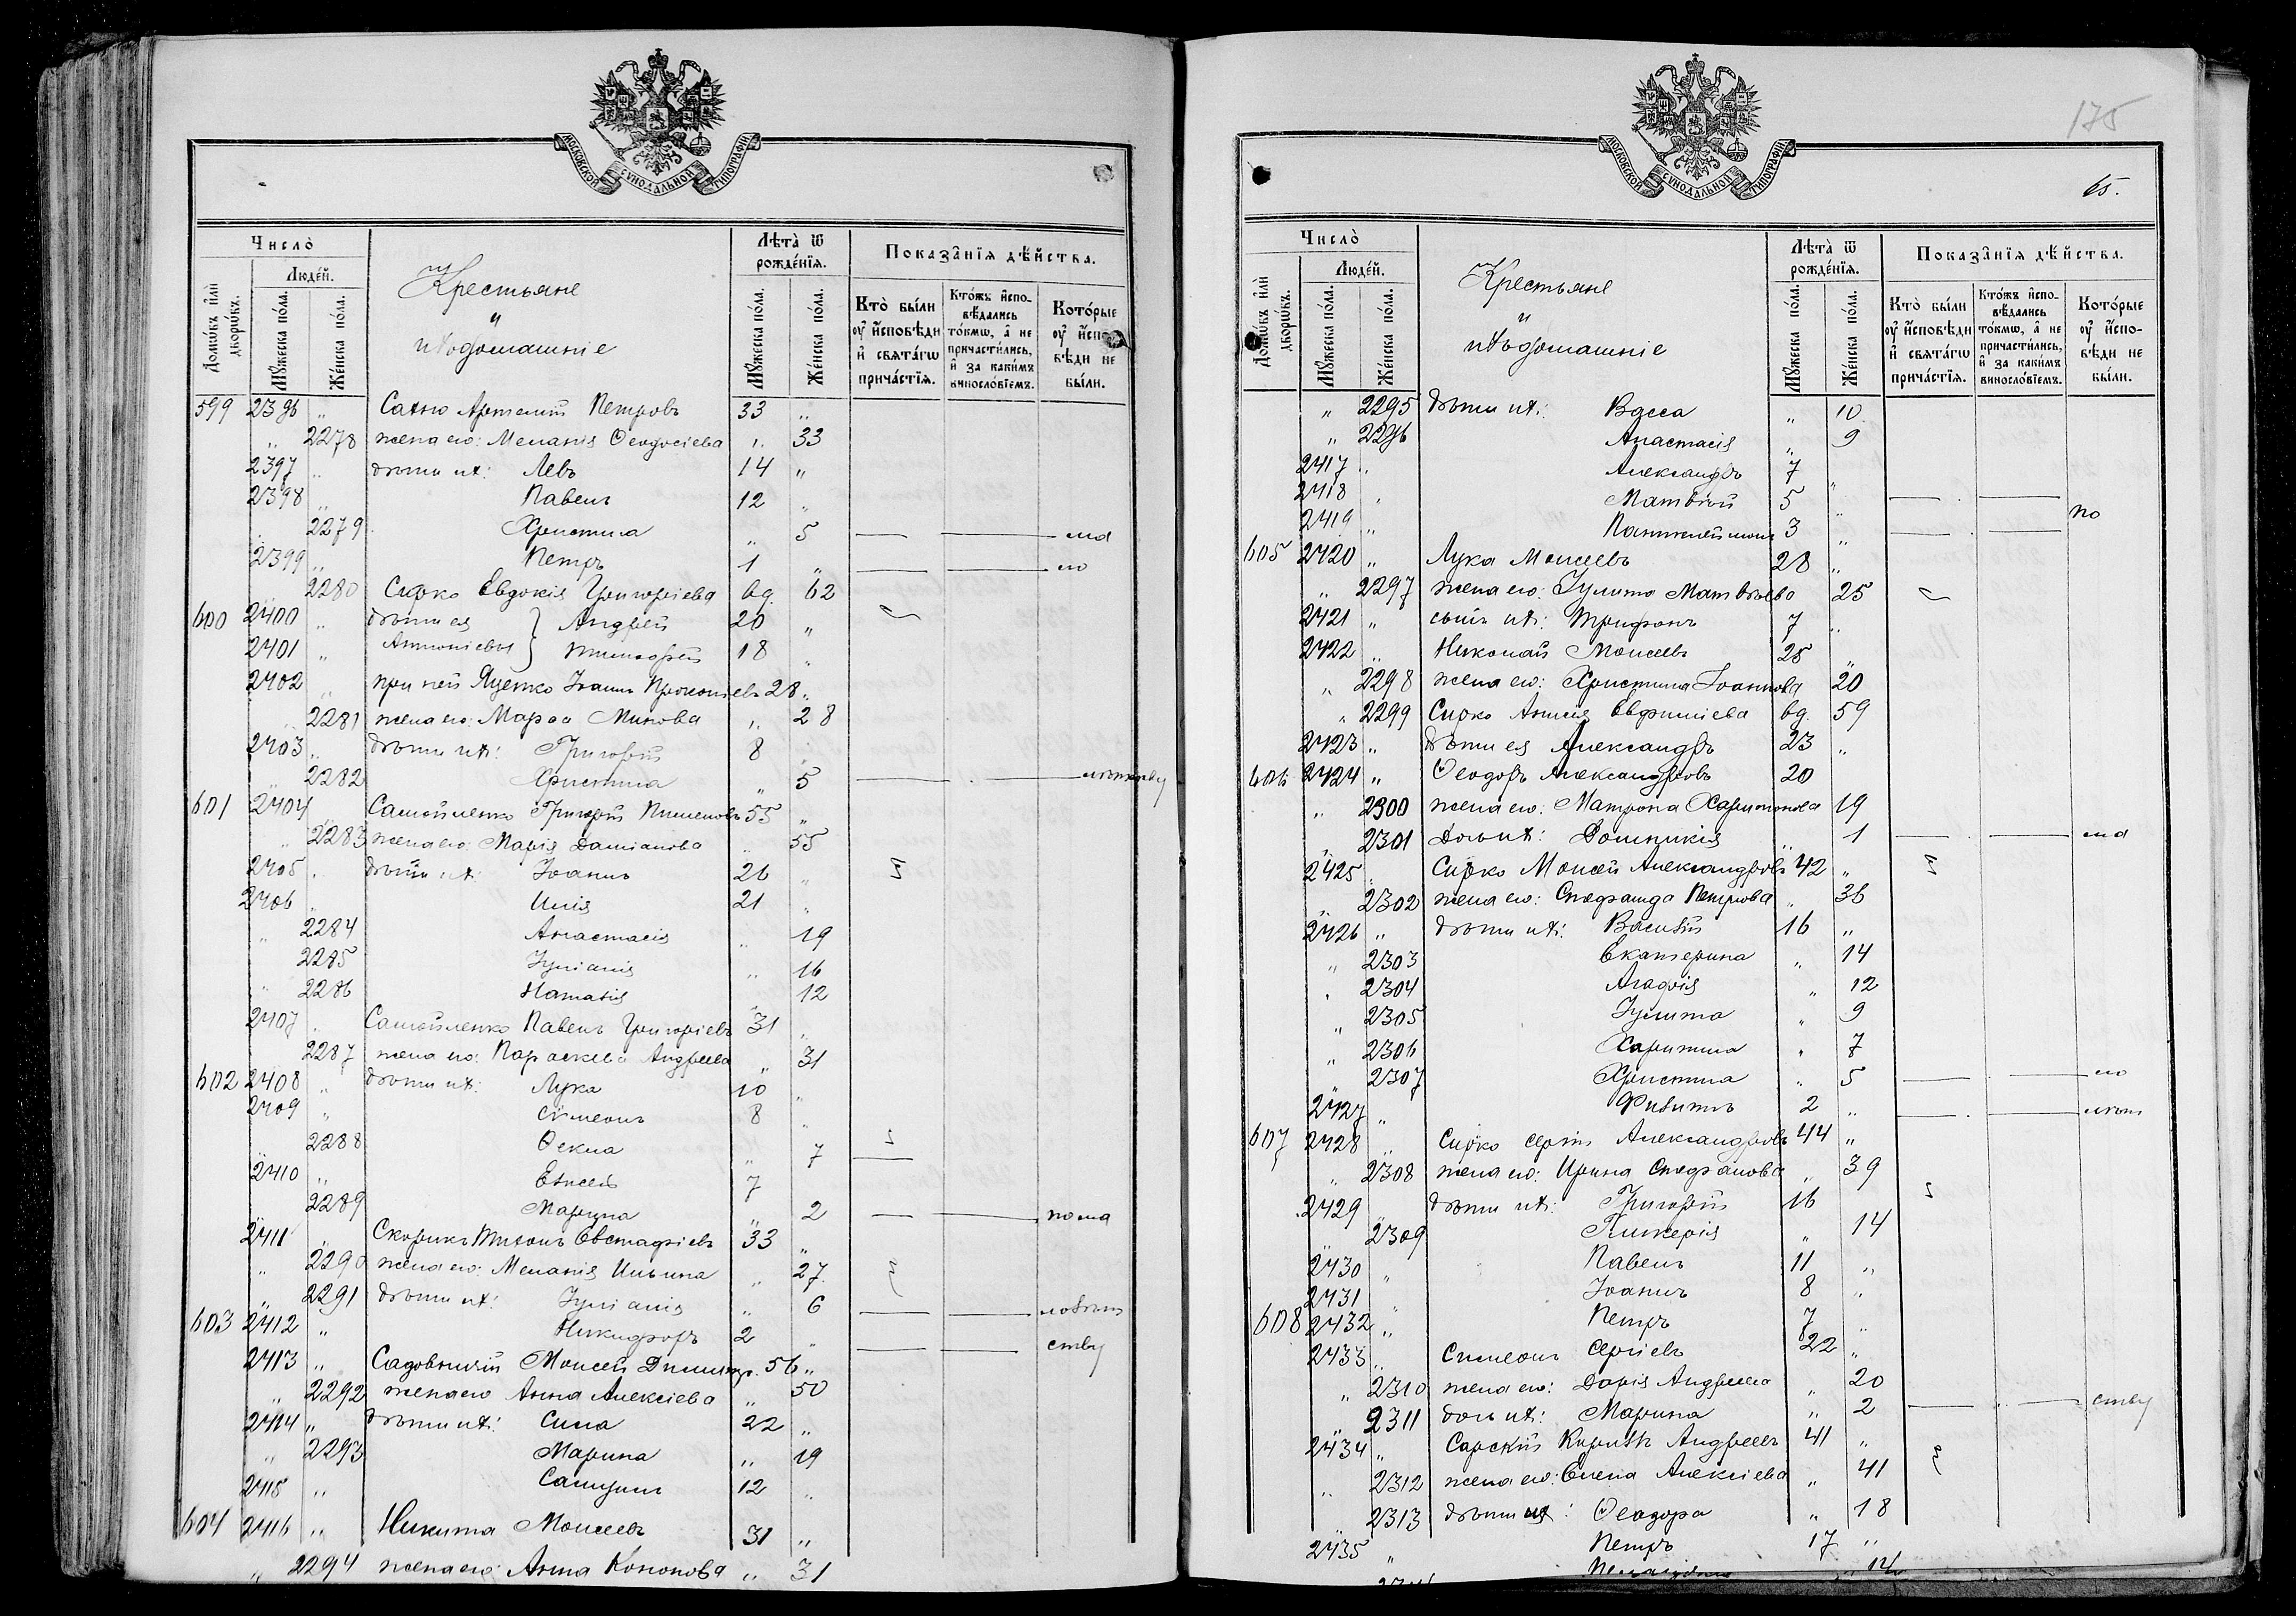 МОСКОВСКОЙ СѴНОДАЛЬНОЙ ТИПОГРАФІИ
Число̀
Людей.
Домѡ́въ и҆лѝ дворѡ́въ.
Мꙋжеска по́ла.
Же́нска по́ла.
Крестьяне
и
ихъ домашніе
Лѣта̀ ѿ рожде́нїѧ.
Мꙋжеска по́ла.
Же́нска по́ла.
Показа̂нїѧ дѣ́йства.
Кто̀ бы́ли оу҆ и҆сповѣди и҆ свѧта́гѡ прича́стїѧ.
Кто́жъ и҆спо-вѣдались то́кмѡ, а҆ не причасти́лись, и҆ за каки́мъ винослові́емъ.
Кото́рые оу҆ и҆спо-вѣди не бы́ли.
599 2396 „ Сахно Артемій Петровъ 33 „
„ 2278 жена его: Меланія Ѳеодосіева „ 33
2397 „ дѣти ихъ: Левъ 14 „
2398 „ Павелъ 12 „
„ 2279 Христина „ 5 — — ма
2399 „ Петръ 1 „ — — ло
2280 Сирко Евдокія Григоріева вд. 62
600 2400 „ дѣти ея } Андрей 20 „
2401 „ Антоніевы } Тимоѳей 18 „
2402 „ при ней Яценко Іоаннъ Прокопіевъ 28 „
„ 2281 жена его: Марѳа Минова „ 28
2403 „ дѣти ихъ: Григорій 8 „
2282 Христина „ 5 — —
601 2404 Самойленко Григорій Пименовъ 55 „
„ 2283 жена его: Марія Даміанова „ 55
2405 „ дѣти ихъ: Іоаннъ 26 „
2406 „ Илія 21 „
„ 2284 Анастасія „ 19
2285 Іуліанія „ 16
„ 2286 Наталія „ 12
2407 „ Самойленко Павелъ Григоріевъ 31 „
2287 жена его: Параскева Андреева „ 31
602 2408 „ дѣти ихъ: Лука 10 „
2409 „ Сѵмеонъ 8 „
2288 Ѳекла „ 7
2410 „ Елисей 7
2289 Марина „ 2 — — по ма
2411 „ Скорикъ Тихонъ Евстафіевъ 33 „
„ 2290 жена его: Меланія Ильина „ 27
„ 2291 дѣти ихъ: Іуліанія „ 6 — —
603 2412 „ Никифоръ 2 „ — — ству
2413 „ Садовничій Моисей Димитр. 56 „
„ 2292 жена его Анна Алексіева „ 50
2414 „ дѣти ихъ: Сила 22 „
„ 2293 Марина „ 19
2415 „ Самуилъ 12 „
604 2416 „ Никита Моисеевъ 31 „
„ 2294 жена его: Анна Кононова „ 31
175
МОСКОВСКОЙ СѴНОДАЛЬНОЙ ТИПОГРАФІИ
65.
Число̀
Людей.
Домѡ́въ и҆лѝ дворѡ́въ.
Мꙋжеска по́ла.
Же́нска по́ла.
Крестьяне
и
ихъ домашніе
Лѣта̀ ѿ рожде́нїѧ.
Мꙋжеска по́ла.
Же́нска по́ла.
Показа̂нїѧ дѣ́йства.
Кто̀ бы́ли оу҆ и҆сповѣди и҆ свѧта́гѡ прича́стїѧ.
Кто́жъ и҆спо-вѣдались то́кмѡ, а҆ не причасти́лись, и҆ за каки́мъ винослові́емъ.
Кото́рые оу҆ и҆спо-вѣди не бы́ли.
„ 2295 дѣти ихъ: Васса „ 10
„ 2296 Анастасія „ 9
2417 „ Александръ 7
2418 „ Матѳей 5 „ — —
2419 „ Пантелеимонъ 3 „ — — по
605 2420 „ Лука Моисеевъ 28 „
„ 2297 жена его: Іулитта Матѳеева 25
2421 „ сынъ ихъ: Трифонъ 7 „
2422 „ Николай Моисеевъ 25 „
„ 2298 жена его: Христина Іоаннова 20
„ 2299 Сирко Анисія Евфиміева вд. 59
2423 „ дѣти ея Александръ 23 „
606 2424 „ Ѳеодоръ Александровъ 20
„ 2300 жена его: Матрона Харитонова 19
2301 дочь ихъ: Домникія „ 1 — — ма
2425 „ Сирко Моисей Александровъ 42 „
2302 жена его: Стефанида Петрова „ 36
2426 „ дѣти ихъ: Василій 16 „
„ 2303 Екатерина „ 14
„ 2304 Агафія „ 12
„ 2305 Іулитта „ 9
„ 2306 Харитина „ 7
„ 2307 Христина „ 5 — — ло
2427 „ Филиппъ 2 „ — —
607 2428 „ Сирко Сергій Александровъ 44 „
„ 2308 жена его: Ирина Стефанова „ 39
2429 дѣти ихъ: Григорій 16
2309 Гликерія „ 14
2430 „ Павелъ 11 „
2431 „ Іоаннъ 8 „
608 2432 „ Петръ 7 „
2433 „ Симеонъ Сергіевъ 22 „
„ 2310 жена его: Дарія Андреева „ 20
2311 дочь ихъ: Марина „ 2 — — ству
2434 „ Сарскій Кириллъ Андреевъ 41 „
„ 2312 жена его: Елена Алексіева „ 41
2313 дѣти ихъ: Ѳеодора „ 18
2435 „ Петръ 17 „